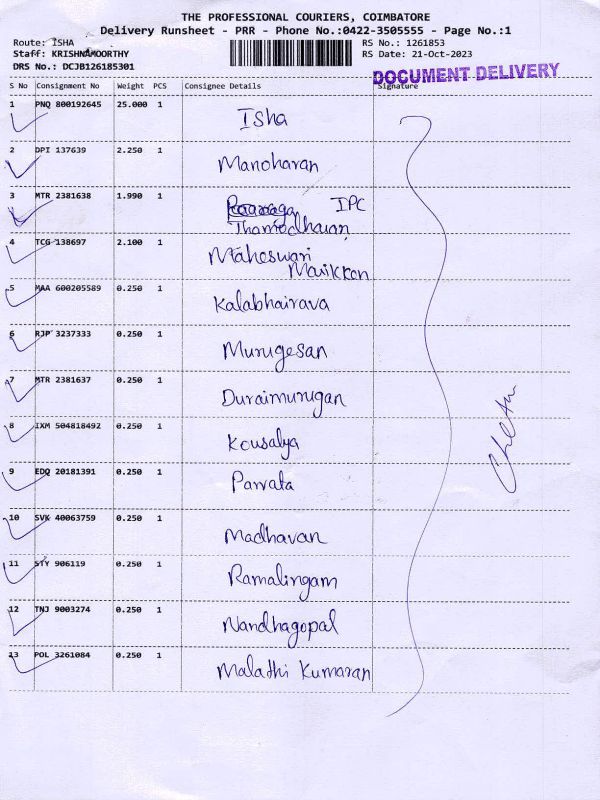 THE PROFESSIONAL COURIERS, COIMBATORE
Delivery Runsheet - PRR - Phone No.:0422-3505555 - Page No.:1
Route: ISHA
Staff: KRISHNAMOORTHY
DRS No.: DCJB126185301
RS No.: 1261853
RS Date: 21-Oct-2023
DOCUMENT DELIVERY
S No Consignment No Weight PCS Consignee Details Signature
1 PNQ 800192645 25.000 1 Isha
2 DPI 137639 2.250 1 Manoharan
3 MTR 2381638 1.990 1 IPC
Thamodharan
4 TCG 138697 2.100 1 Maheswari
Manikken
5 MAA 600205589 0.250 1 Kalabhairava
6 RJP 3237333 0.250 1 Murugesan
7 MTR 2381637 0.250 1 Duraimurugan
8 IXM 504818492 0.250 1 Kousalya
9 EDQ 20181391 0.250 1 Parvata
10 SVK 40063759 0.250 1 Madhavan
11 STY 906119 0.250 1 Ramalingam
12 TNJ 9003274 0.250 1 Nandhagopal
13 POL 3261084 0.250 1 Malathi Kumaran